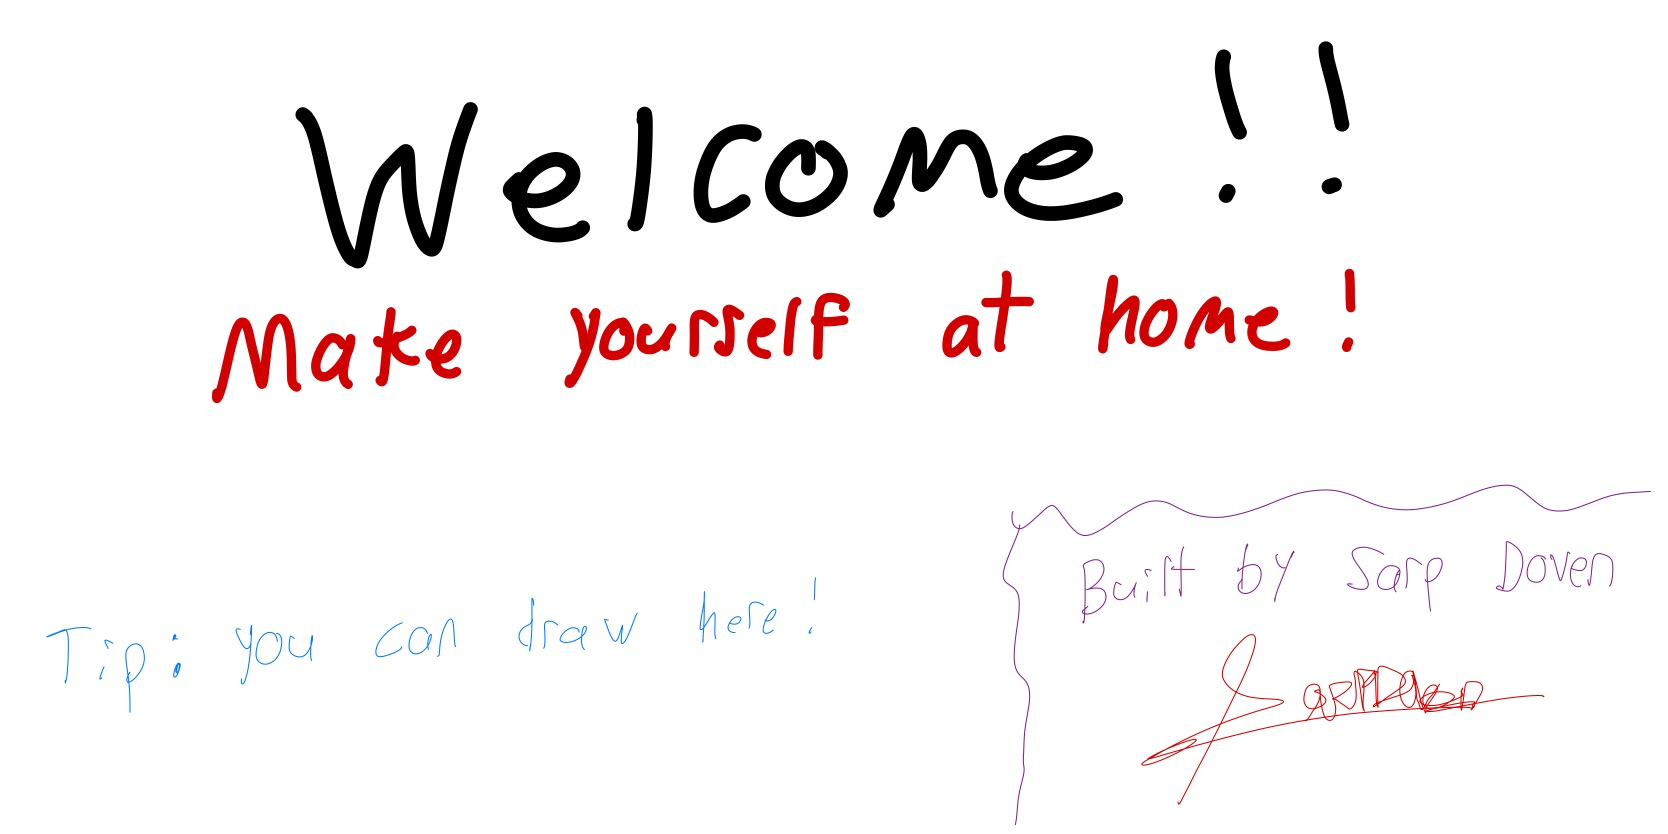 Welcome!!
Make yourself at home!
Tip: you can draw here!
Built by Sarp Doven